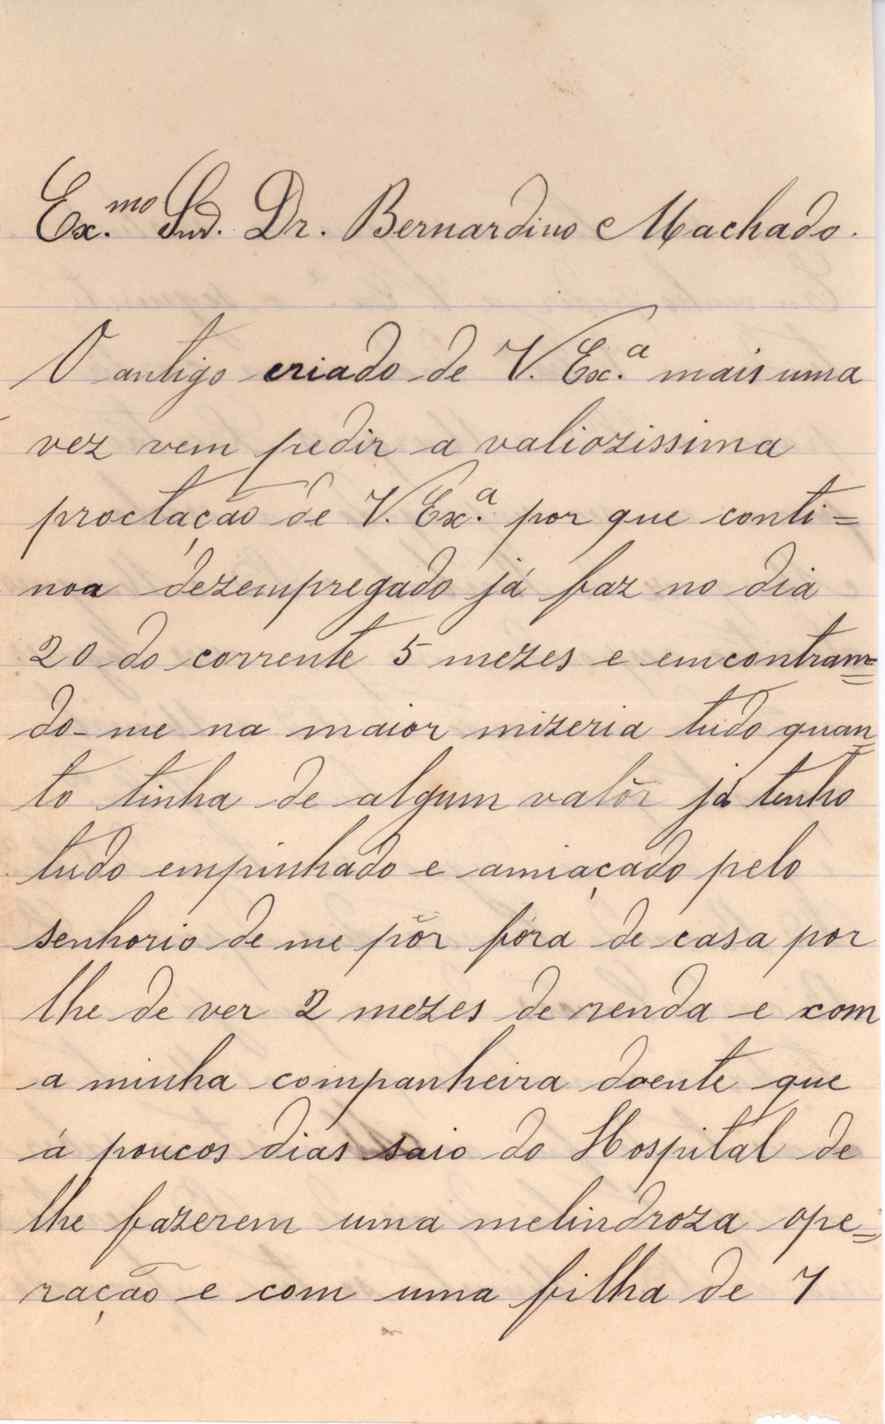 Ex.mo Snr. Dr. Bernardino Machado.
O antigo criado de V. Ex.a mais uma
vez vem pedir a valiozissima
proctação de V. Ex.a por que conti=
noa dezempregado já faz no dia
20 do corrente 5 mezes e emcontram=
do-me na maior mizeria tudo quan=
to tinha de algum valôr já tenho
tudo empinhado e amiaçado pelo
senhorio de me pôr fóra de casa por
lhe de ver 2 mezes de renda e com
a minha companheira doente que
á poucos dias saio do Hospital de
lhe fazerem uma melindroza ope=
ração e com uma filha de 7